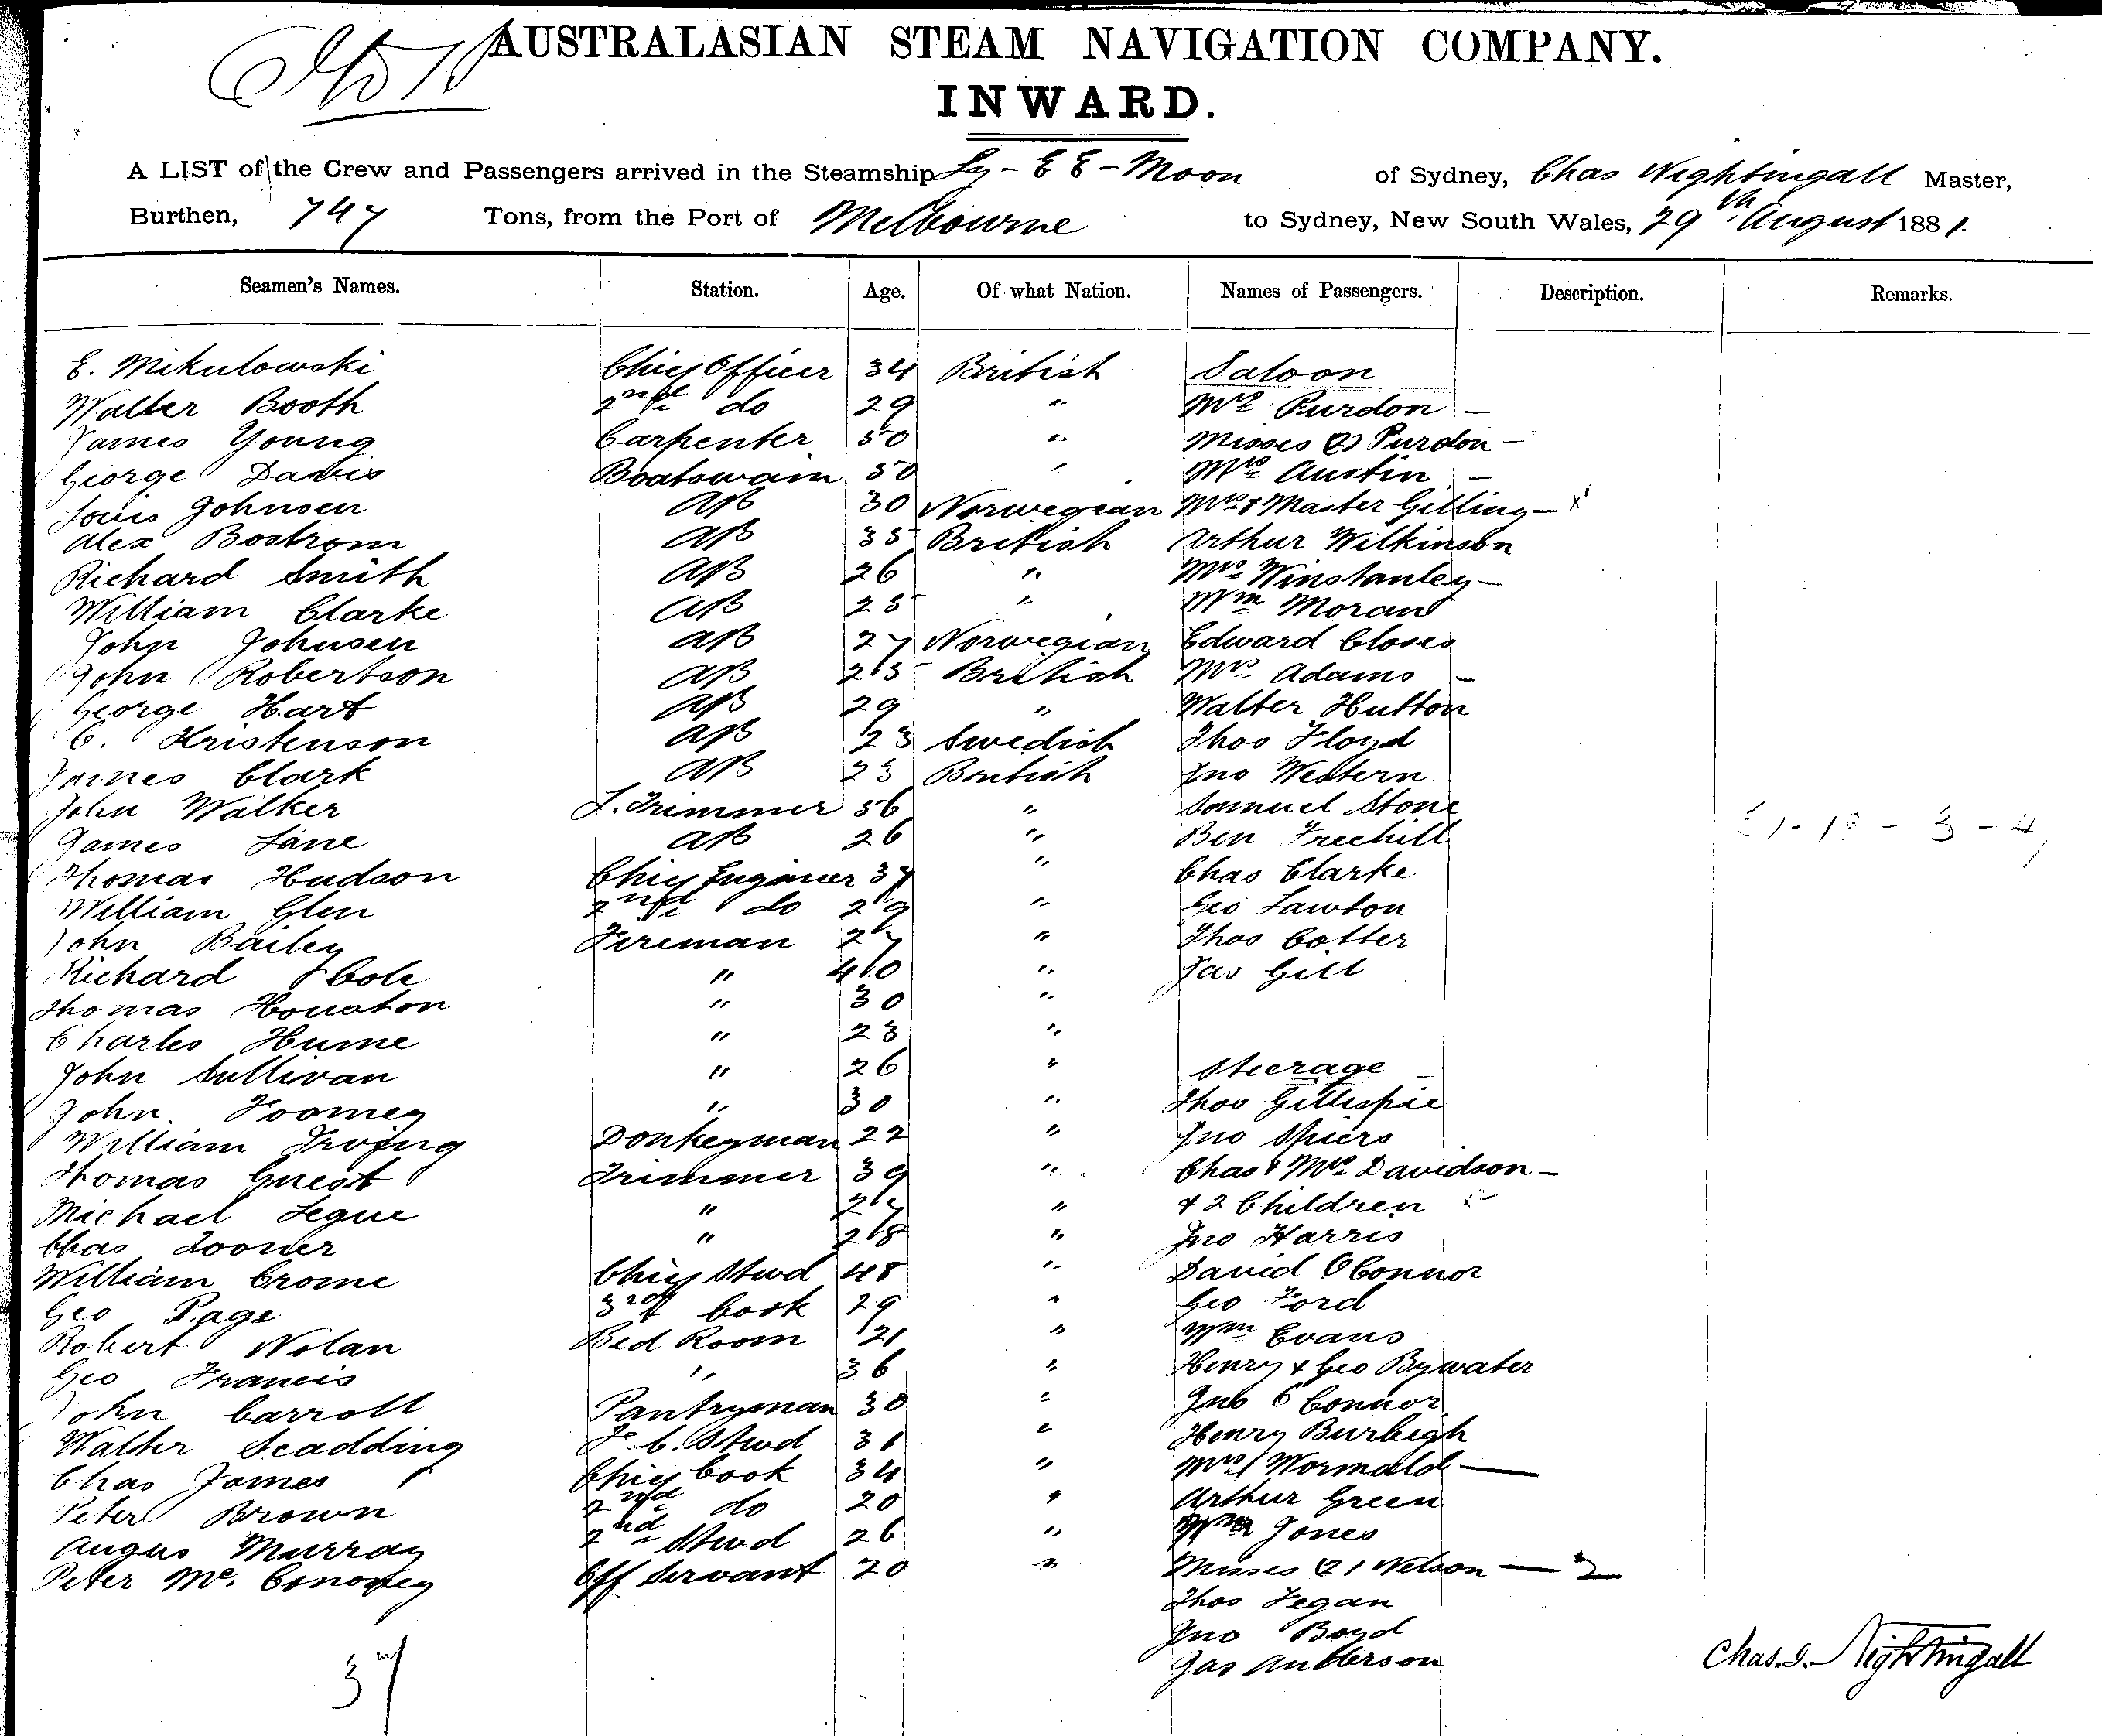 AUSTRALASIAN STEAM NAVIGATION COMPANY.
INWARD.
A LIST of the Crew and Passengers arrived in the Steamship Ly-EE-Moon of Sydney, Chas Nightingall Master,
Burthen, 747 Tons, from the Port of Melbourne to Sydney, New South Wales, 29th August 1881.
Seamen's Names. Station. Age. Of what Nation. Names of Passengers. Description. Remarks.
E. Mikulowski Chief Officer 34 British Saloon
Walter Booth 2nd do 29 " Mrs Purdon –
James Young Carpenter 50 " Misses (2) Purdon –
George Davis Boatswain 50 " Mrs Austin –
Louis Johnsen AB 30 Norwegian Mrs & Master Gelling – x
Alex Bostrom AB 35 British Arthur Wilkinson
Richard Smith AB 26 " Mrs Winstanley –
William Clarke AB 25 " Wm Moran
John Johnsen AB 27 Norwegian Edward Closes
John Robertson AB 25 British Mrs Adams –
George Hart AB 29 " Walter Hutton
C. Kristenson AB 23 Swedish Thos Floyd
James Clark AB 23 British Jno Western
John Walker L. Trimmer 56 " Samuel Stone
James Lane AB 26 " Ben Freehill
Thomas Hudson Chief Engineer 37 " Chas Clarke
William Glen 2nd do 29 " Geo Lawton
John Bailey Fireman 27 " Thos Cotter
Richard Cole " 40 " Jas Gill
Thomas Houston " 30 "
Charles Hume " 23 "
John Sullivan " 26 " Steerage
John Toomey " 30 " Thos Gillespie
William Irving Donkeyman 22 " Jno Spiers
Thomas Guest Trimmer 39 " Chas & Mrs Davidson –
Michael Legue " 27 " & 2 Children
Chas Zooner " 28 " Jno Harris
William Crome Chief Stwd 48 " David OConnor
Geo Page 3rd Cook 29 " Geo Ford
Robert Nolan Bed Room 21 " Wm Evans
Geo Francis " 36 " Henry & Geo Bywater
John Carroll Pantryman 30 " Jno OConnor
Walter Scadding F. C. Stwd 31 " Henry Burleigh
Chas James Chief Cook 34 " Mrs Wormald —
Peter Brown 2nd do 20 " Arthur Green
Angus Murray 2nd Stwd 26 " Wm Jones
Peter Mc. Off Servant 20 " Misses (2) Nelson — 2
Thos Fegan
Jno Boyd
Jas Anderson
37
Chas. Nightingall